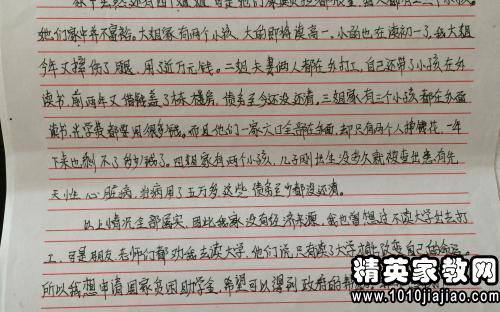 她们家中并不富裕。大姐家有两个小孩、大的即将读高一。小的也在读初一了。我大姐
今年又摔伤了腿,用了近万元钱。二姐夫妻两人都在乡打工,自己还带了小孩在乡
读书,前两年又借钱盖了栋楼房,债务至今还没还清。三姐家有三个小孩都在外面
读书,光学费都要用很多钱。而且他们一家六口全部在外面,却只有两个人挣钱花,一年
下来也剩不了多少钱了。四姐家有两个小孩,儿子刚出生没多久就被查出患有先
天性心脏病,治病用了五万多,这些债务至今都没还清。
以上情况全部属实,因此我家没有经济来源,我也曾想过不读大学出去打
工,可是朋友、老师们都劝我去读大学,他们说,只有读了大学才能改变自己的命运。
所以我想申请国家贫困助学金,希望可以得到政府的帮
精英家教网
www.1010jiajiao.com